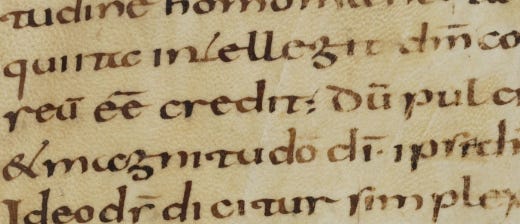 tudine homo
qui itac intellegit dm̄ co
reū eē credit; Dū pulc
& magnitudo dī. ipse
Ideo dr̄ dicitur simplex